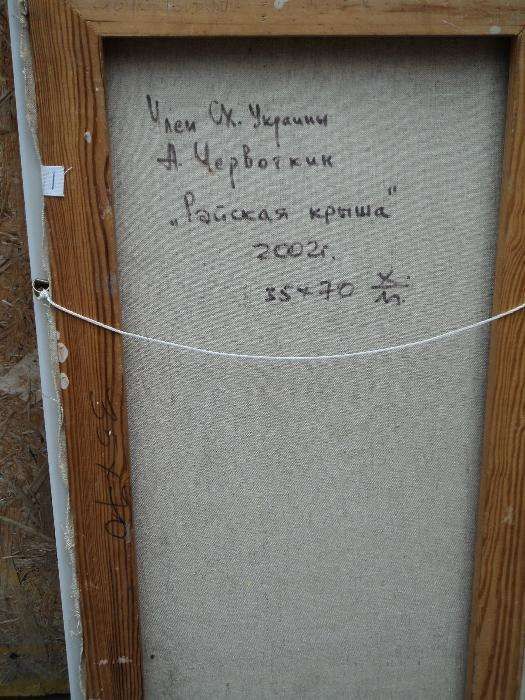 Член СХ. Украины
А. Червоткин
„Райская крыша"
2002г.
35×70 х/м
35×70
1